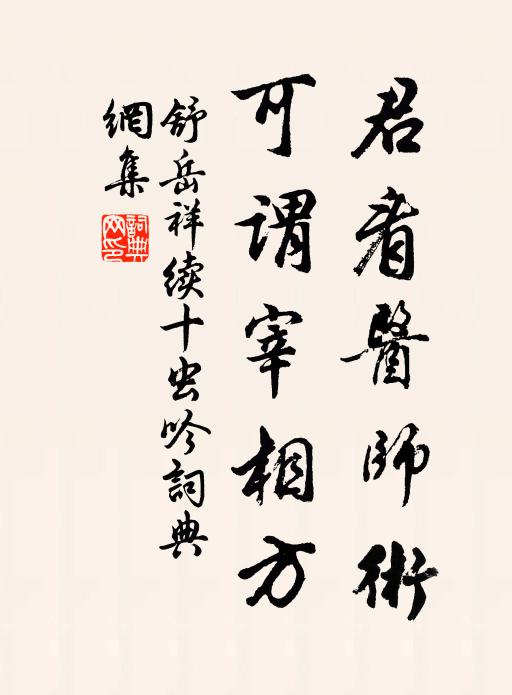 君看醫師術
可謂宰相方
舒岳祥續十虫吟詞典
網集
詞典網印